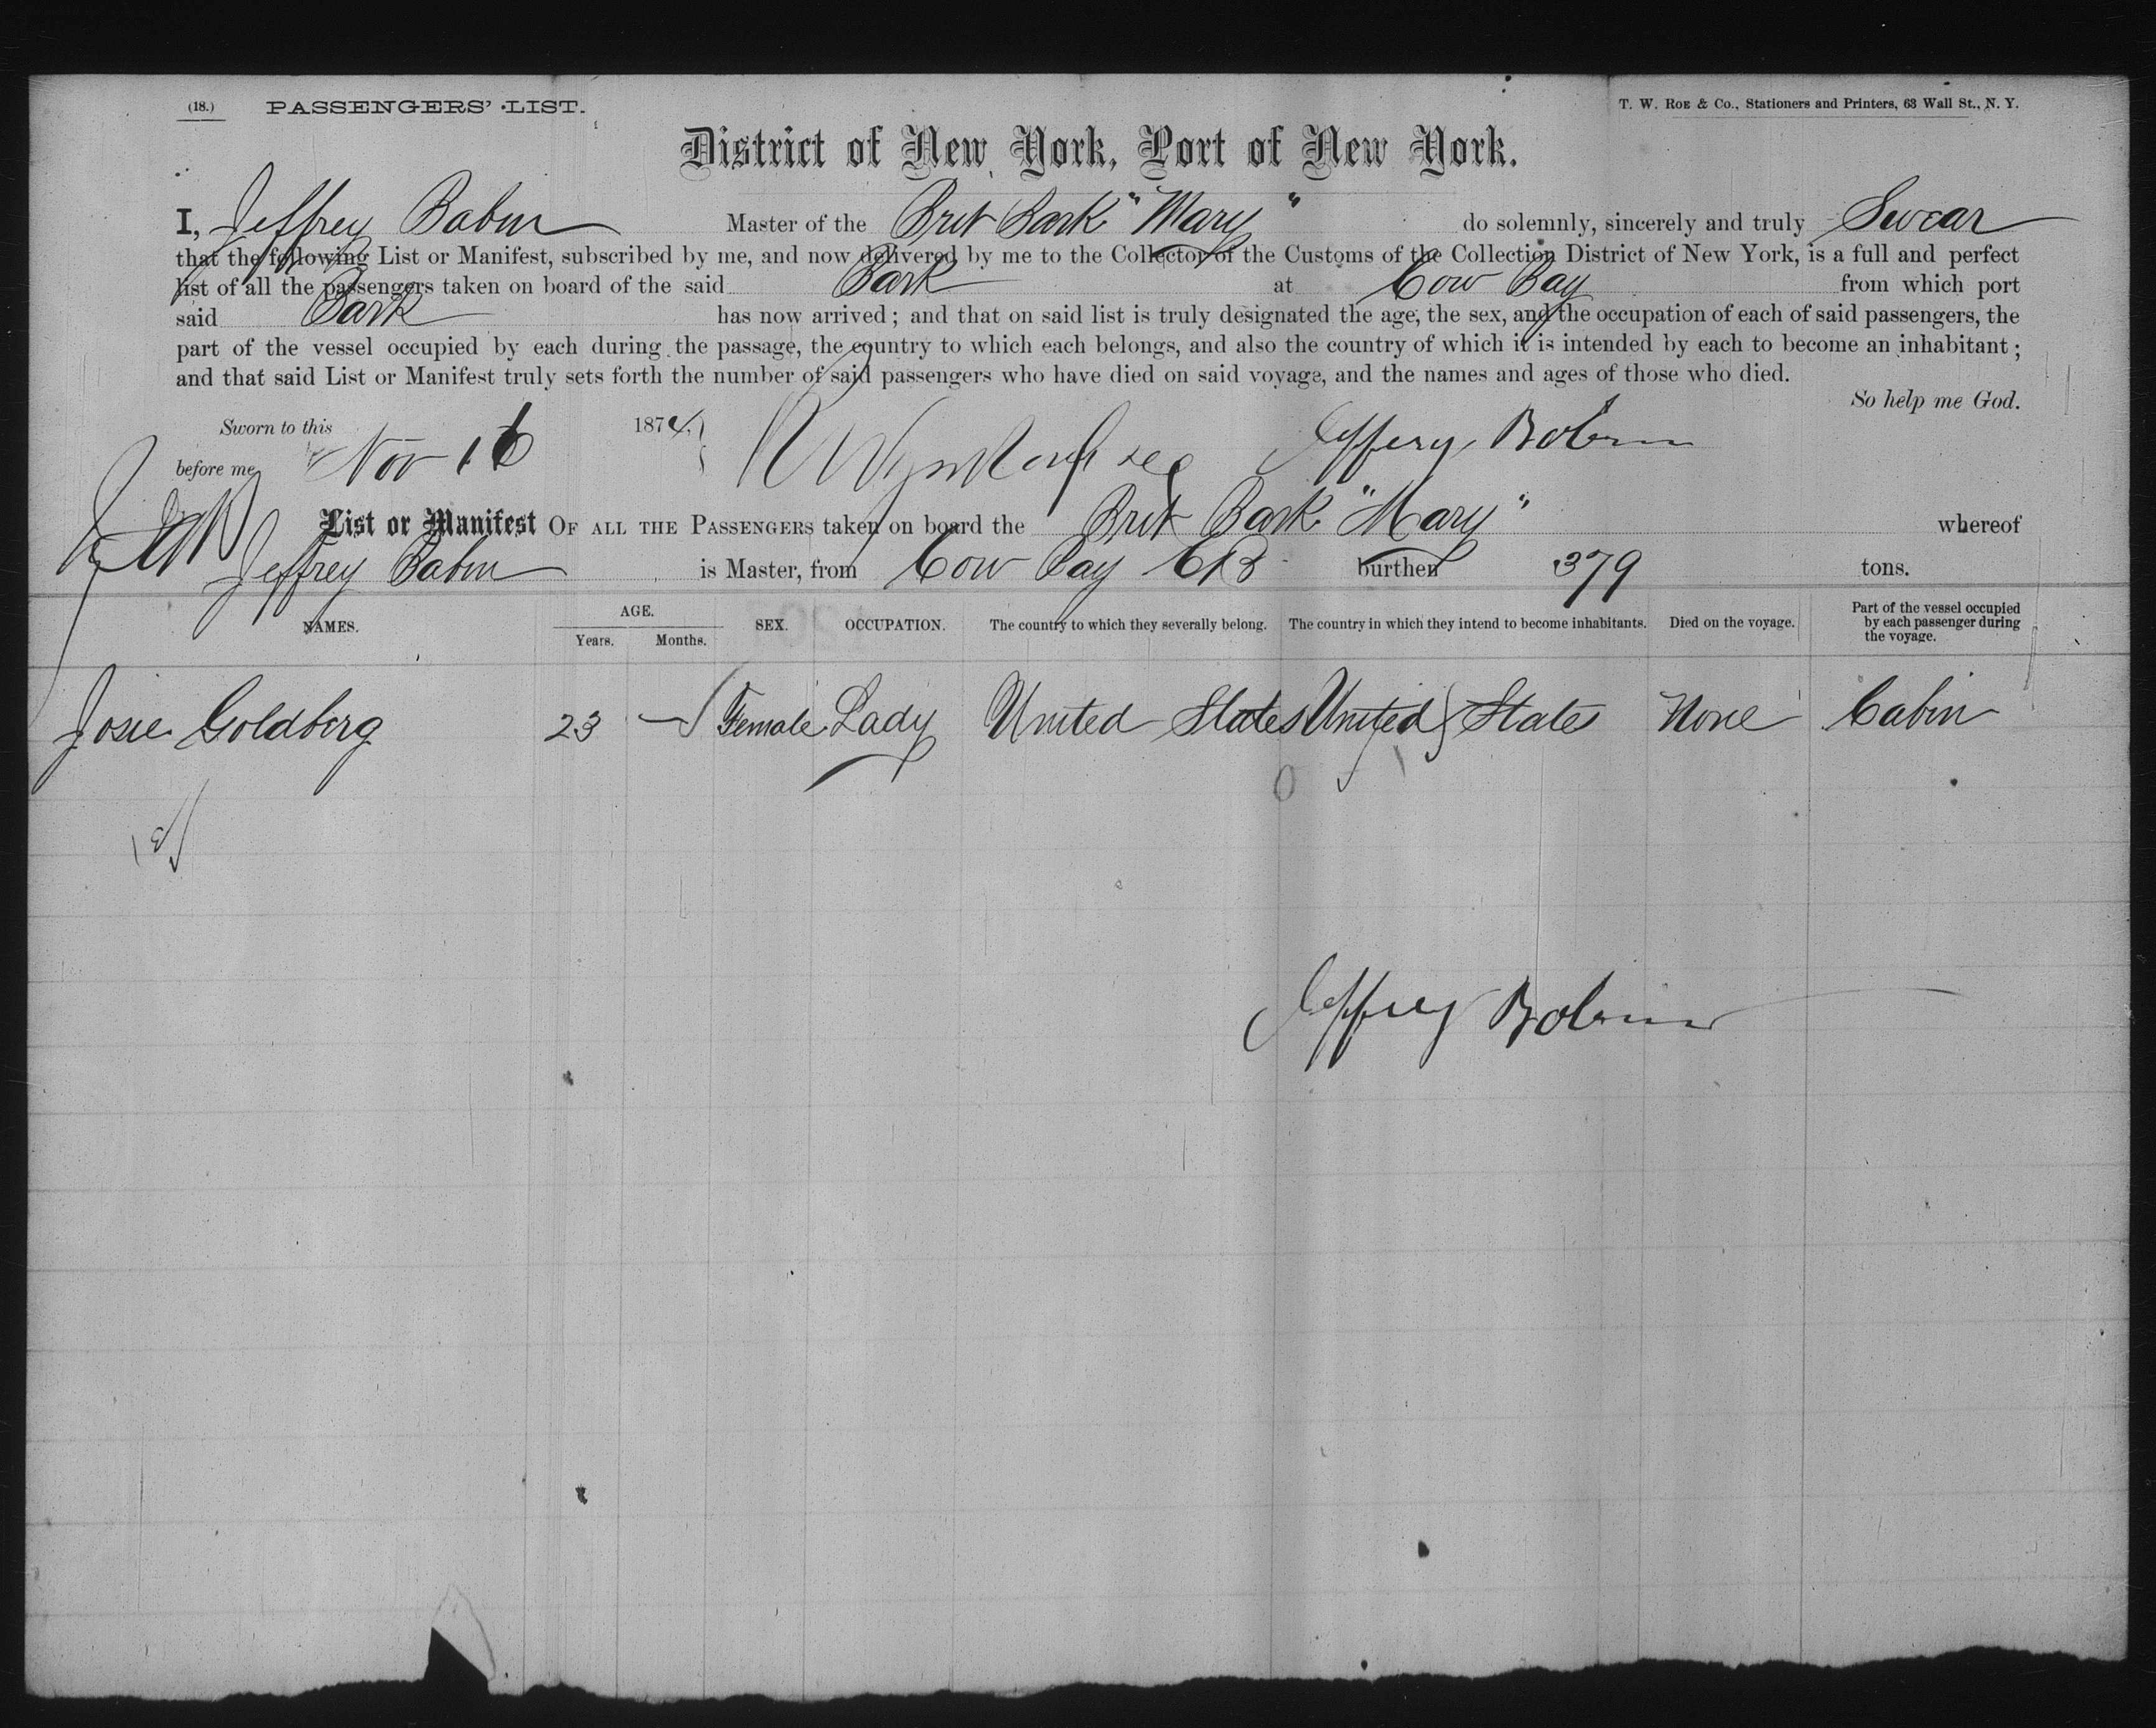 (18.) PASSENGERS' LIST.
T. W. Roe & Co., Stationers and Printers, 63 Wall St., N. Y.
District of New York, Port of New York.
I, Jeffrey Babin Master of the Brit Bark "Mary" do solemnly, sincerely and truly Swear
that the following List or Manifest, subscribed by me, and now delivered by me to the Collector of the Customs of the Collection District of New York, is a full and perfect
list of all the passengers taken on board of the said Bark at Cow Bay from which port
said Bark has now arrived; and that on said list is truly designated the age, the sex, and the occupation of each of said passengers, the
part of the vessel occupied by each during the passage, the country to which each belongs, and also the country of which it is intended by each to become an inhabitant;
and that said List or Manifest truly sets forth the number of said passengers who have died on said voyage, and the names and ages of those who died.
So help me God.
Sworn to this Nov 16 1874
before me
Jeffery
List or Manifest OF ALL THE PASSENGERS taken on board the Brit Bark "Mary" whereof
Jeffrey Babin is Master, from Cow Bay CB burthen 379 tons.
NAMES. AGE. Years. Months. SEX. OCCUPATION. The country to which they severally belong. The country in which they intend to become inhabitants. Died on the voyage. Part of the vessel occupied by each passenger during the voyage.
Josie Goldberg 23 — Female Lady United States United States None Cabin
Jeffrey